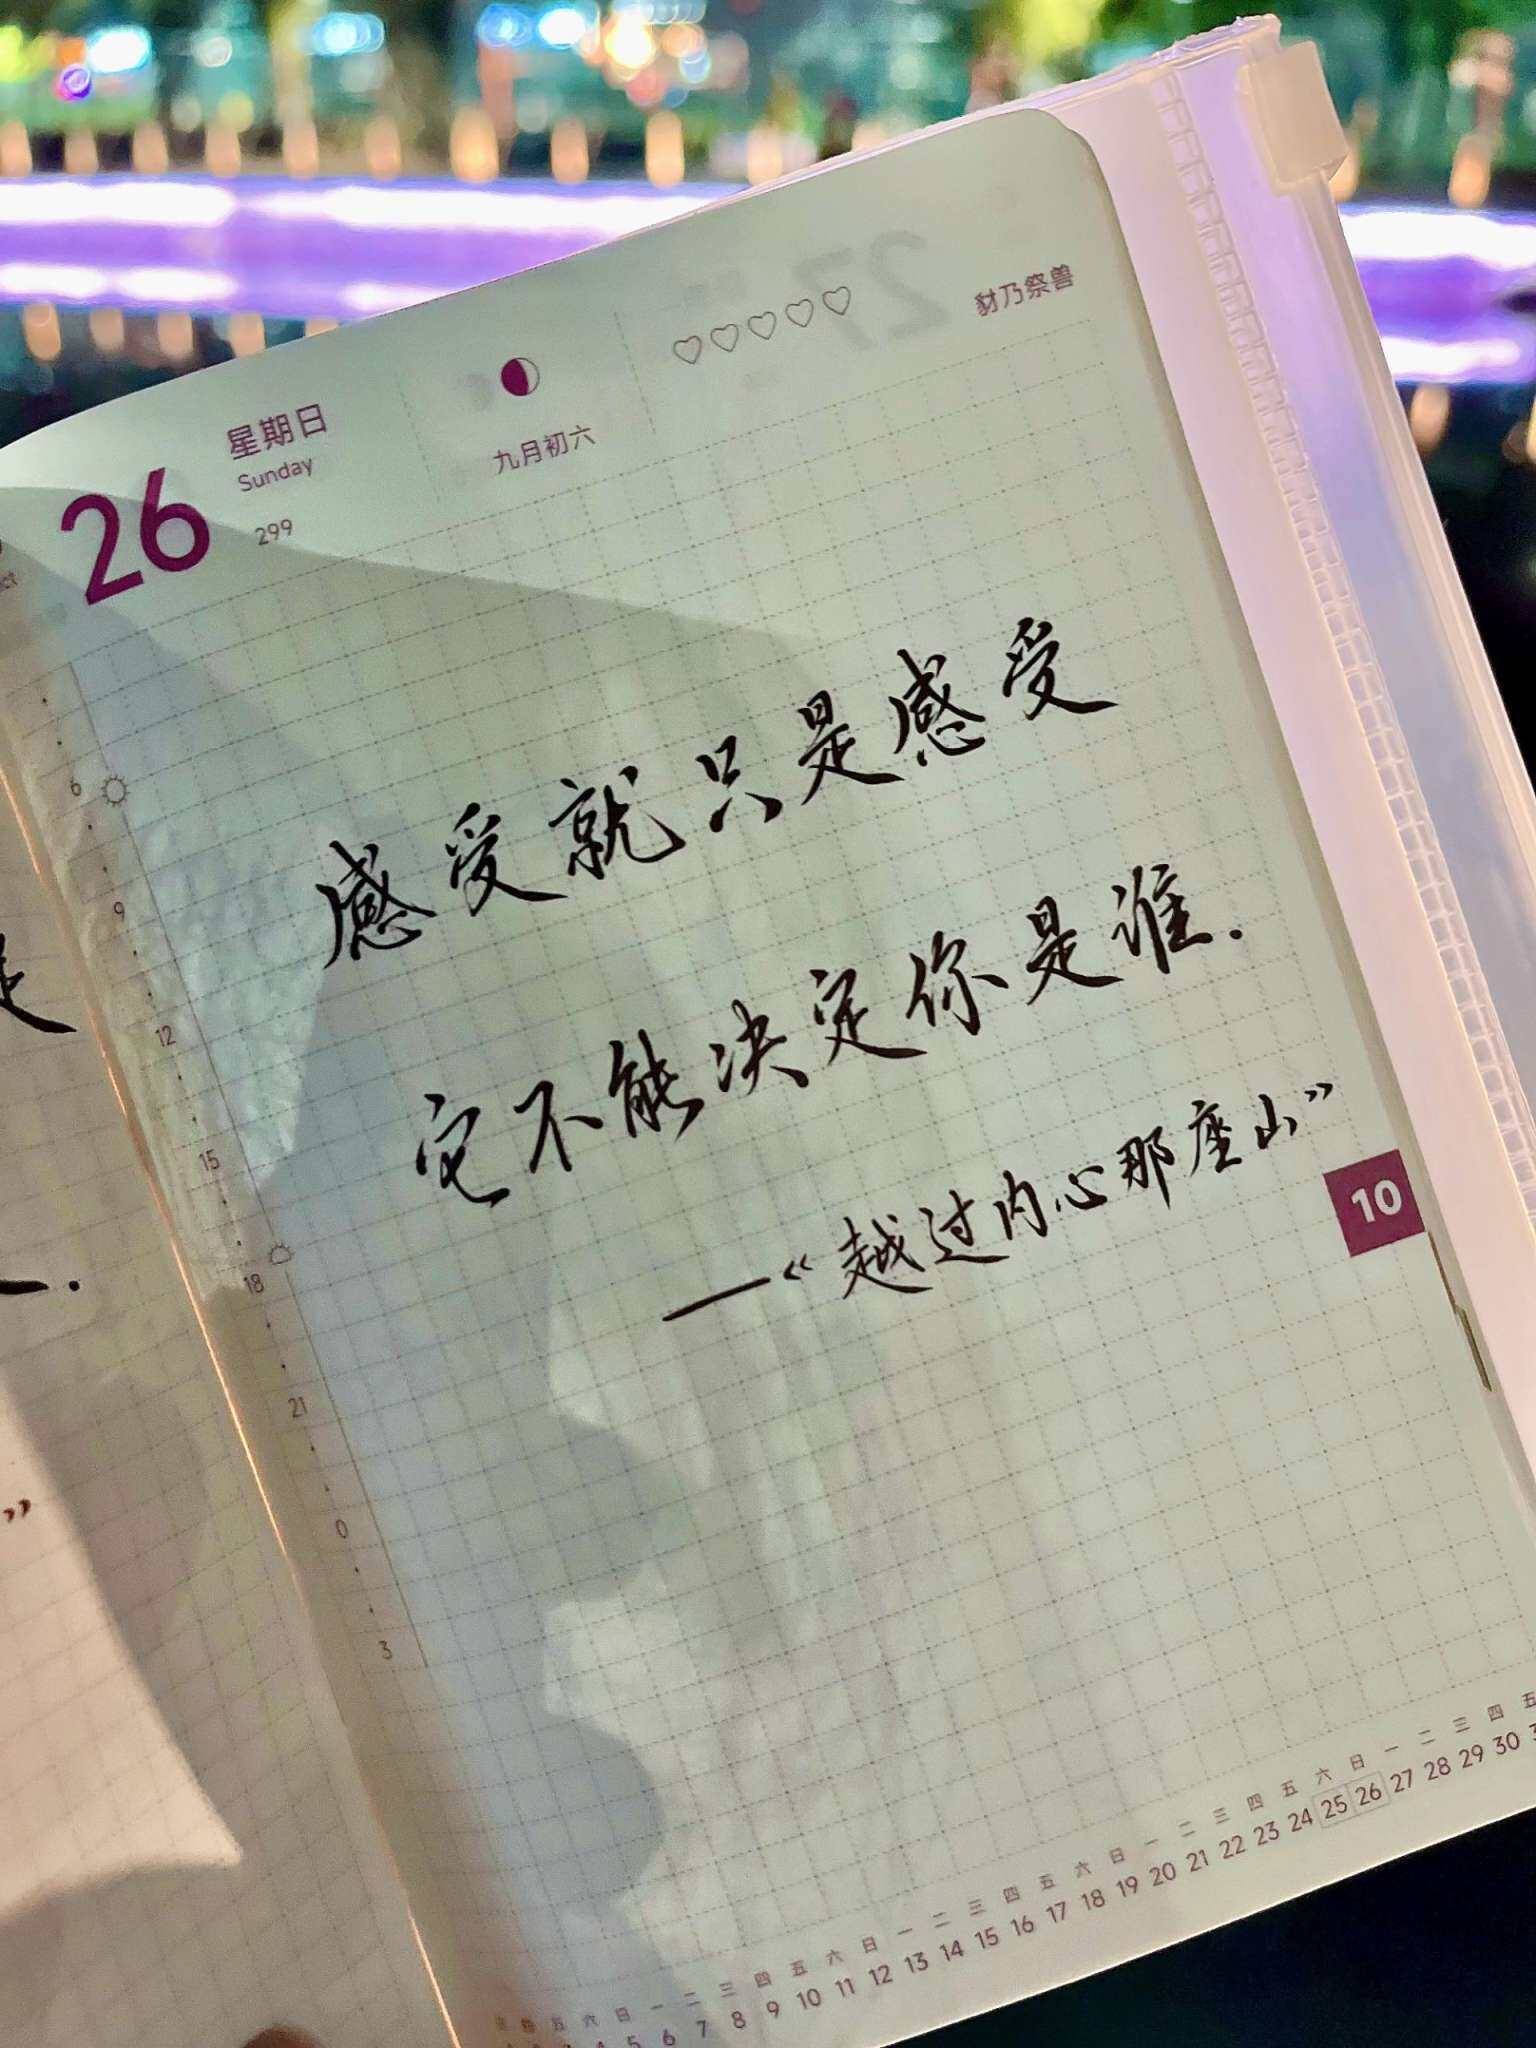 26
星期日
Sunday
299
九月初六
豺乃祭兽
27
感受就只是感受
它不能决定你是谁.
——“越过内心那座山”
10
6
9
12
15
18
21
0
3
五 六 日 一 二 三 四 五 六 日 一 二 三 四 五 六 日 一 二 三 四 五 六 日 一 二 三 四 五
4 5 6 7 8 9 10 11 12 13 14 15 16 17 18 19 20 21 22 23 24 25 26 27 28 29 30